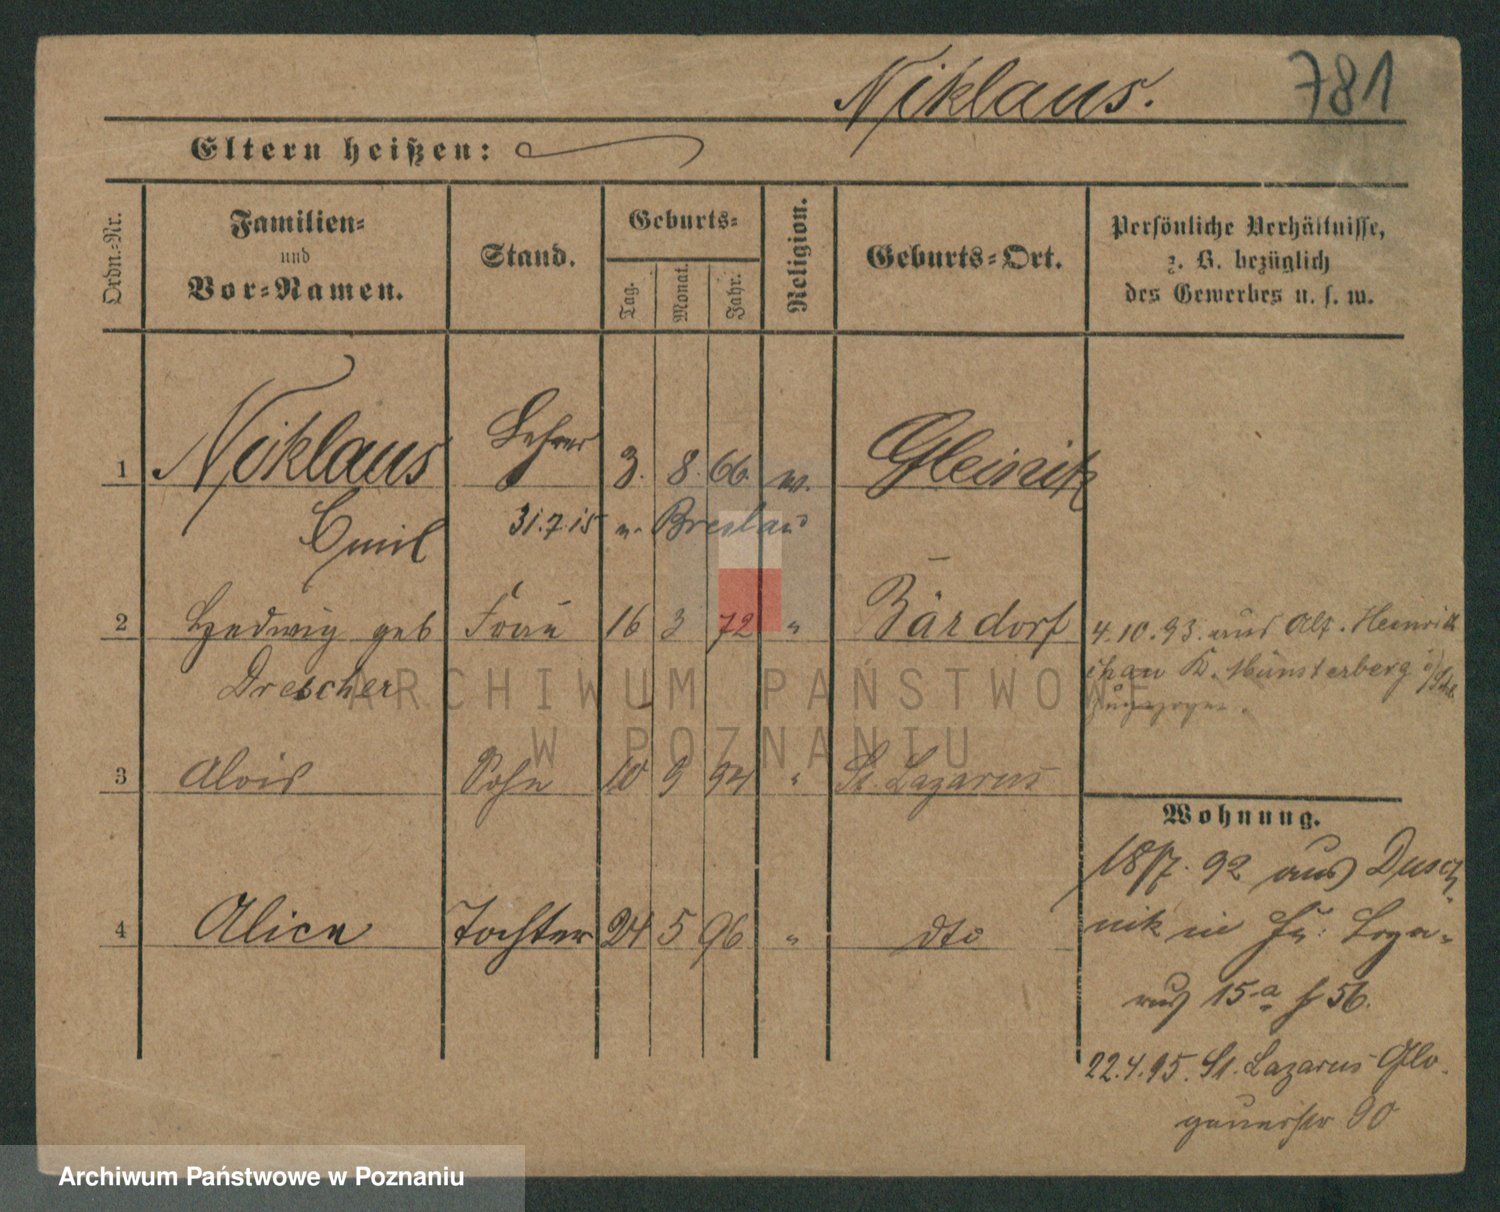 Niklaus. 781
Eltern heißen:
Ordn.-Nr.
Familien-
und
Vor-Namen.
Stand.
Geburts-
Tag.
Monat.
Jahr.
Religion.
Geburts-Ort.
Persönliche Verhältnisse,
z. B. bezüglich
des Gewerbes u. s. w.
1 Niklaus Lehrer 3. 8. 66. Gleinitz
Emil 31.7.15 n. Breslau
2 Hedwig geb Frau 16 3 72 " Bärdorf
Drescher
4.10.93. aus Alt. Heinrik
K. Münsterberg
3 Alois Sohn 10 9 94 " St. Lazarus
4 Alice Tochter 24 5 96 " dto
Wohnung.
18/7. 92 aus Dusch
nik in St: Laza-
rus 15a b 56.
22.4.95. St. Lazarus Glo-
gauerstr 90
ARCHIWUM PAŃSTWOWE
W POZNANIU
Archiwum Państwowe w Poznaniu